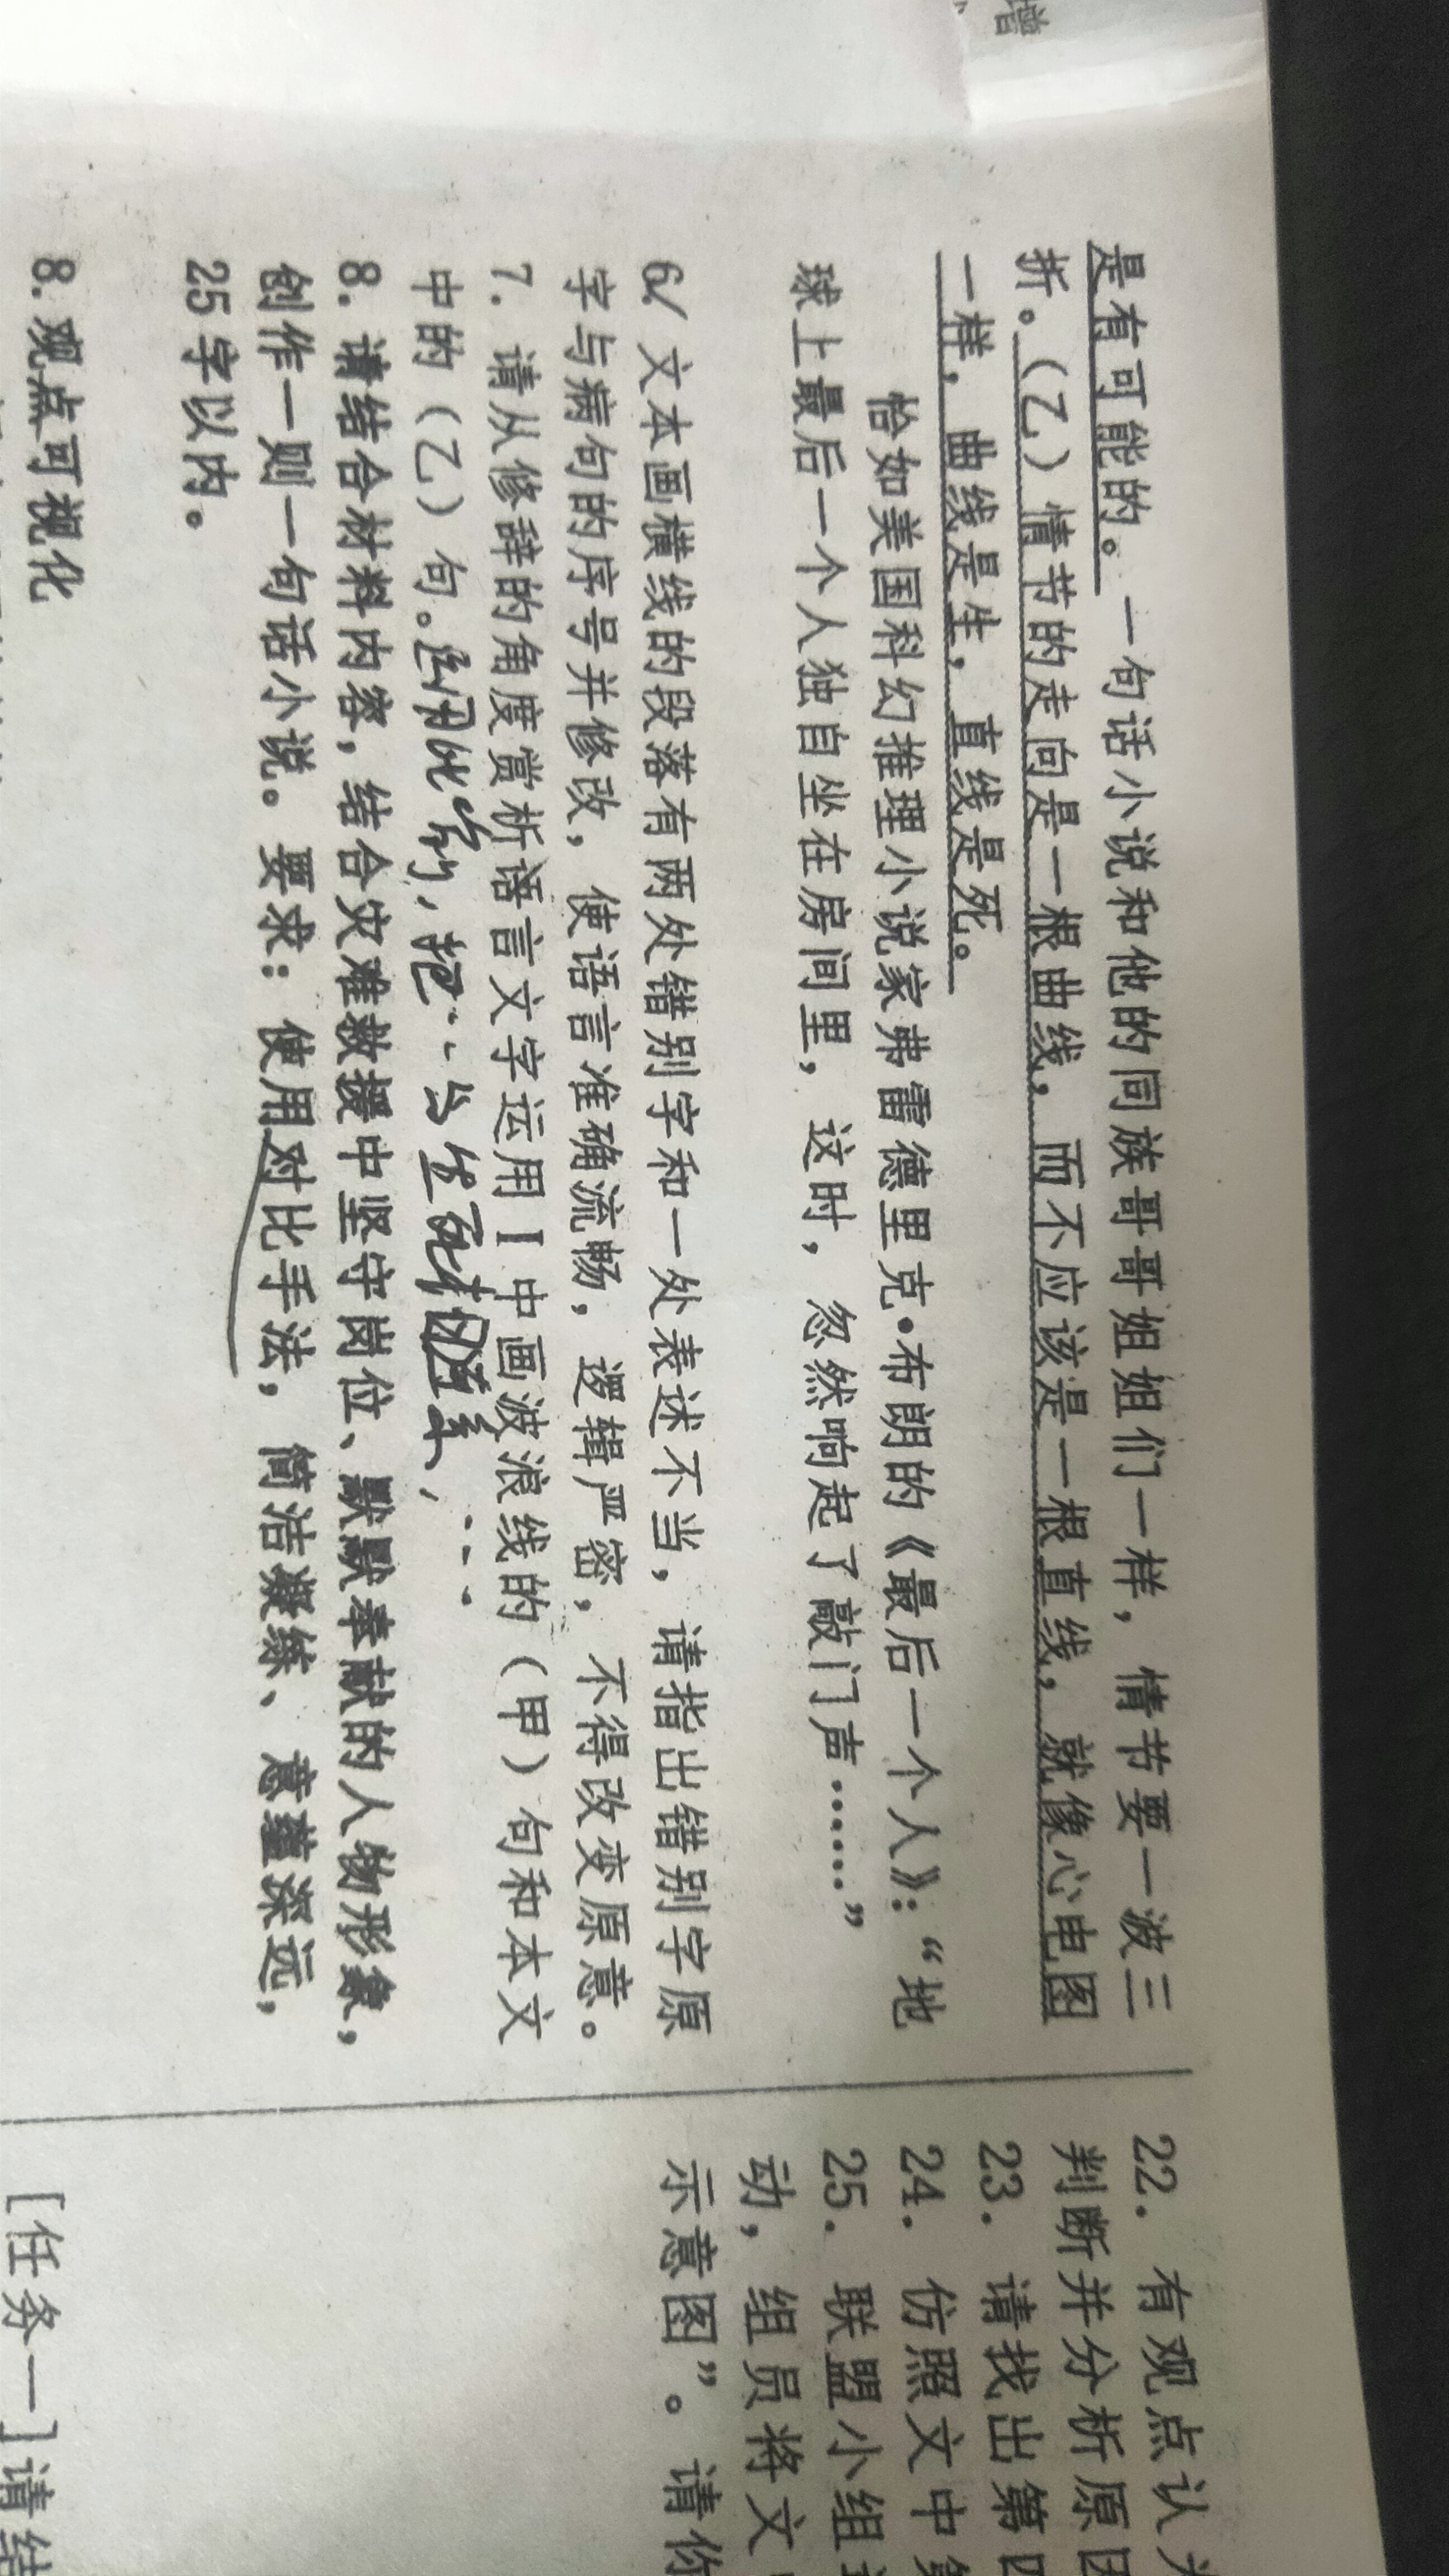 是有可能的。一句话小说和他的同族哥哥姐姐们一样，情节要一波三
折。（乙）情节的走向是一根曲线，而不应该是一根直线，就像心电图
一样，曲线是生，直线是死。
恰如美国科幻推理小说家弗雷德里克•布朗的《最后一个人》：“地
球上最后一个人独自坐在房间里，这时，忽然响起了敲门声……”
6. 文本画横线的段落有两处错别字和一处表述不当，请指出错别字原
字与病句的序号并修改，使语言准确流畅，逻辑严密，不得改变原意。
7. 请从修辞的角度赏析语言文字运用Ⅰ中画波浪线的（甲）句和本文
中的（乙）句。运用比喻，把…与生死相联系，…
8. 请结合材料内容，结合灾难救援中坚守岗位、默默奉献的人物形象，
创作一则一句话小说。要求：使用对比手法，简洁凝练、意蕴深远，
25字以内。
8. 观点可视化
22. 有观点认
判断并分析原因
23. 请找出第四
24. 仿照文中第
25. 联盟小组
动，组员将文
示意图”。请你
[任务一]请结
墙